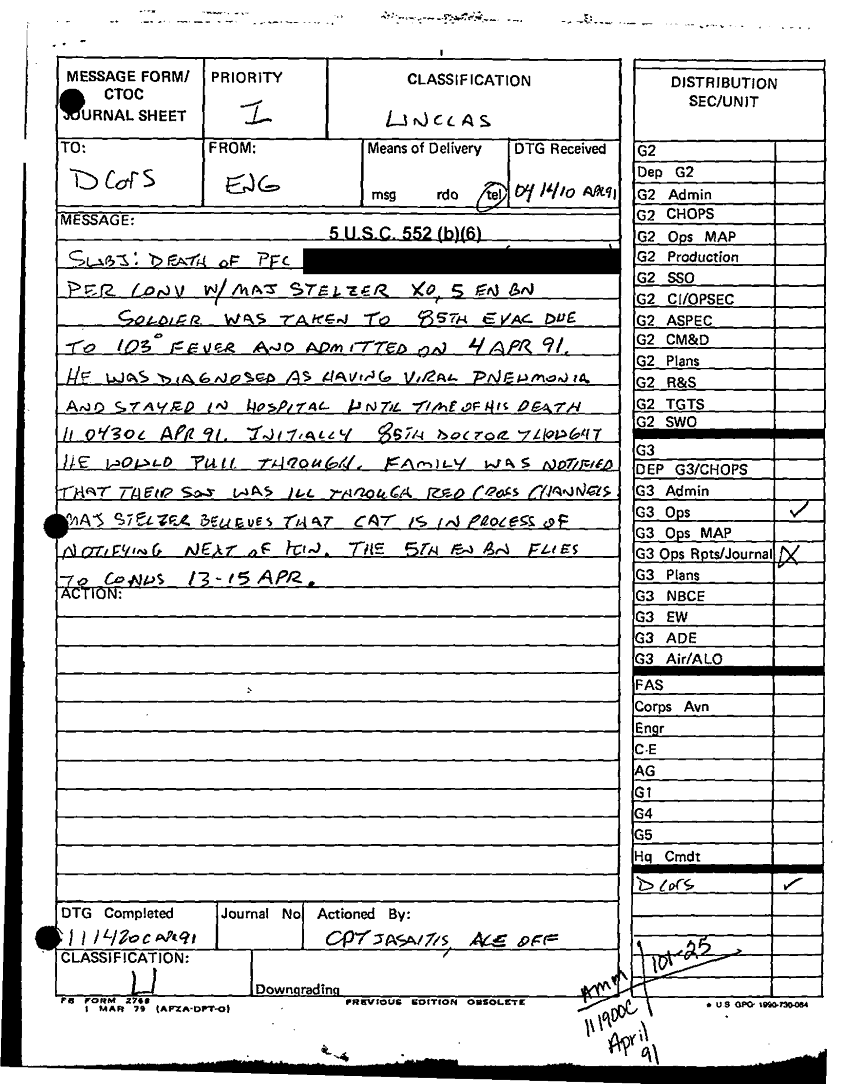 MESSAGE FORM/
CTOC
JOURNAL SHEET
PRIORITY
I
CLASSIFICATION
UNCLAS
TO:
D CofS
FROM:
ENG
Means of Delivery
msg rdo tel
DTG Received
04 1410 APR 91
MESSAGE:
5 U.S.C. 552 (b)(6)
SUBJ: DEATH OF PFC
PER CONV W/ MAJ STELZER XO, 5 EN BN
SOLDIER WAS TAKEN TO 85TH EVAC DUE
TO 103° FEVER AND ADMITTED ON 4 APR 91.
HE WAS DIAGNOSED AS HAVING VIRAL PNEUMONIA
AND STAYED IN HOSPITAL UNTIL TIME OF HIS DEATH
11 0430C APR 91. INITIALLY 85TH DOCTOR THOUGHT
HE WOULD PULL THROUGH. FAMILY WAS NOTIFIED
THAT THEIR SON WAS ILL THROUGH RED CROSS CHANNELS
MAJ STELZER BELIEVES THAT CAT IS IN PROCESS OF
NOTIFYING NEXT OF KIN. THE 5TH EN BN FLIES
TO CONUS 13-15 APR.
ACTION:
DTG Completed
111420C APR 91
Journal No
Actioned By:
CPT JASAITIS, ACE OFF
CLASSIFICATION:
U
Downgrading
FB FORM 2768
1 MAR 79 (AFZA-DPT-O)
PREVIOUS EDITION OBSOLETE
DISTRIBUTION
SEC/UNIT
G2
Dep G2
G2 Admin
G2 CHOPS
G2 Ops MAP
G2 Production
G2 SSO
G2 CI/OPSEC
G2 ASPEC
G2 CM&D
G2 Plans
G2 R&S
G2 TGTS
G2 SWO
G3
DEP G3/CHOPS
G3 Admin
G3 Ops ✓
G3 Ops MAP
G3 Ops Rpts/Journal X
G3 Plans
G3 NBCE
G3 EW
G3 ADE
G3 Air/ALO
FAS
Corps Avn
Engr
C-E
AG
G1
G4
G5
Hq Cmdt
D CofS ✓
AMM 101-25
111900C
April
91
★ U S GPO 1990-730-084